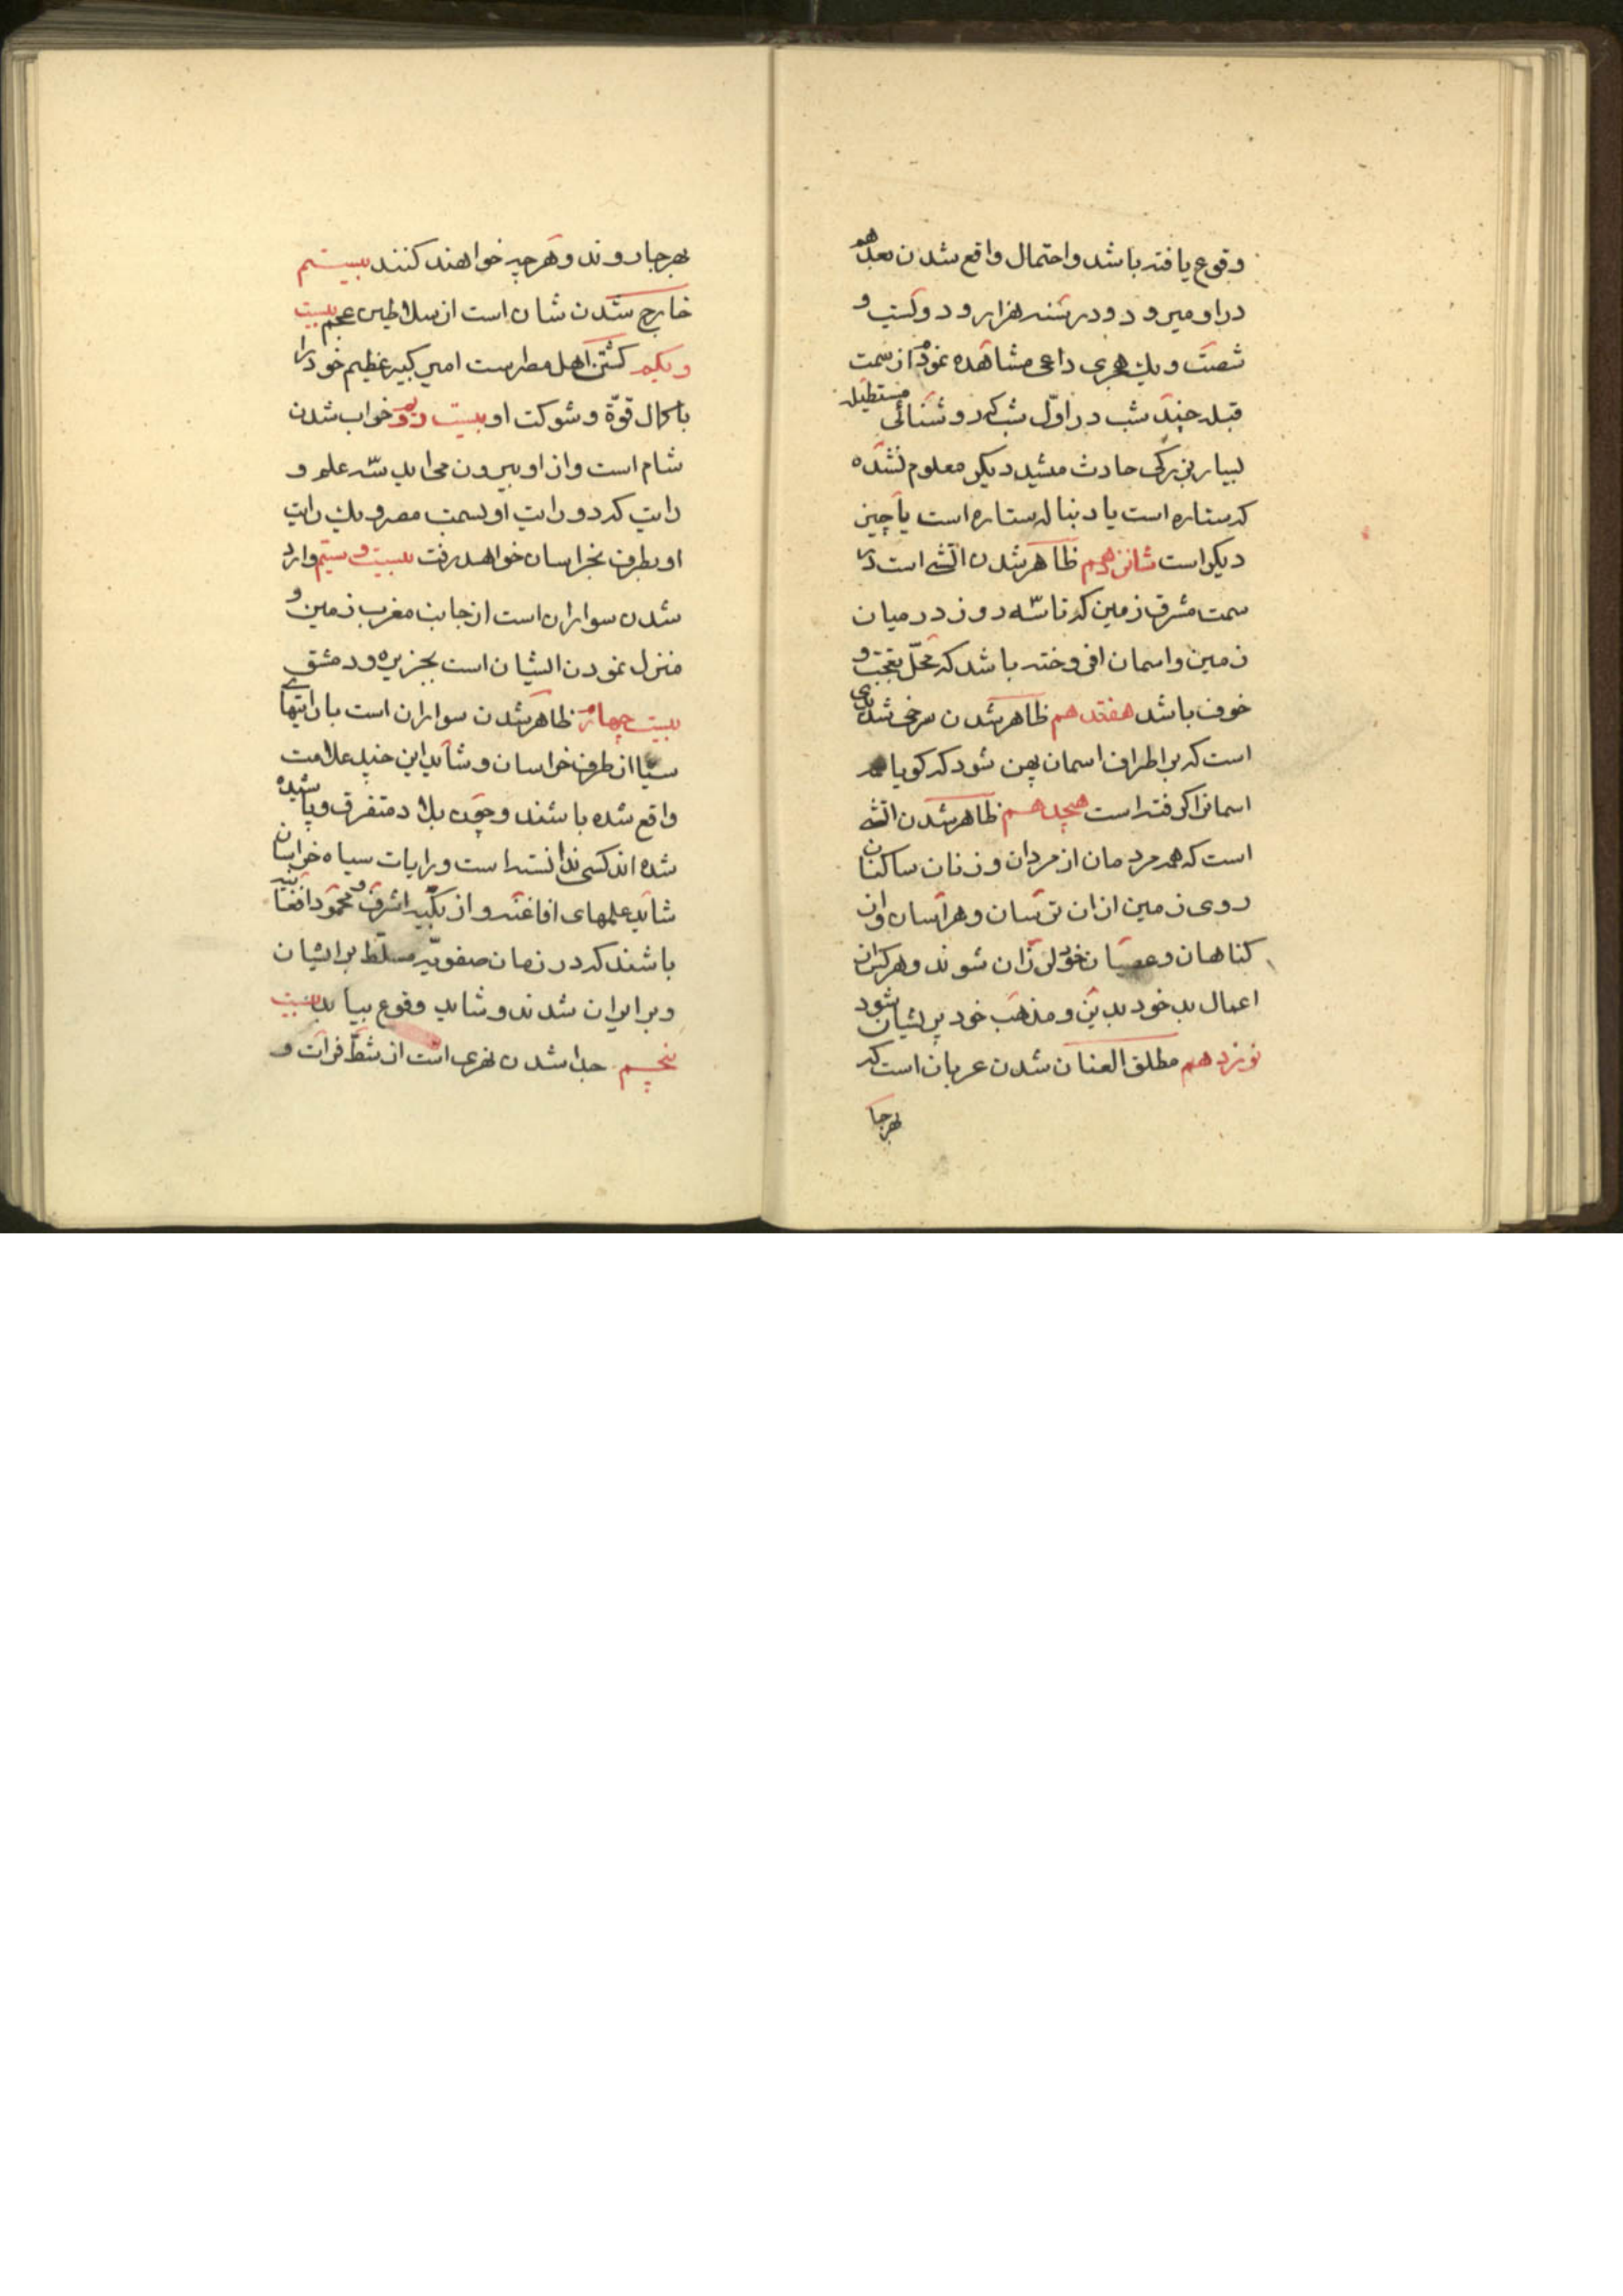 وقوع یافته باشد و احتمال واقع شدن بعد هم
در او میرود و در سنه هزار و دویست و
شصت و یك هجری داعی مشاهده نمودم از سمت
قبله چند شب در اوّل شب که روشنائی مستطیل
بسیار بزرکی حادث میشد دیکر معلوم نشده
که ستاره است یا دنباله ستاره است یا چیز
دیکر است شانزدهم ظاهر شدن اتشی است در
سمت مشرق زمین که تا سّه روز در میان
زمین و اسمان افروخته باشد که محلّ تعجّب و
خوف باشد هفتدهم ظاهر شدن سرخی شدیدی
است که بر اطراف اسمان پهن شود که کویا همه
اسمانرا کرفته است هیجدهم ظاهر شدن اتشی
است که همه مردمان از مردان و زنان ساکنان
روی زمین ازان ترسان و هراسان و از
کناهان و عصیان خود لرزان شوند و هر کس از
اعمال بد خود بدین و مذهب خود پریشان شود
نوزدهم مطلق العنان شدن عربان است که
بهر جا
بهر جا روند و هر چه خواهند کنند بیستم
خارج شدن شان است از سلاطین عجم بیست
و یکم کشتن اهل مصر ست امیر کبیر عظیم خود را
با کمال قوّة و شوکت او بیست و دوم خراب شدن
شام است و از او بیرون می اید سّه علم و
رایت که دو رایت او بسمت مصر و یك رایت
او بطرف بخراسان خواهد رفت بیست و سیّم وارد
شدن سواران است از جانب مغرب زمین و
منزل نمودن ایشان است بجزیره و دمشق
بیست چهارم ظاهر شدن سواران است با رایتهای
سیا از طرف خراسان و شاید این چند علامت
واقع شده باشند و چون بلاد متفرق و پاشیده
شده اند کسی ندانسته است و رایات سیاه خراسان
شاید علمهای افاغنه و ازبکّیه اشرف و محمود افغانیه
باشند که در زمان صفویّه مسلّط بر ایشان
و بر ایران شدند و شاید وقوع بیابد بیست
پنجم جدا شدن نهری است از شطّ فرات و